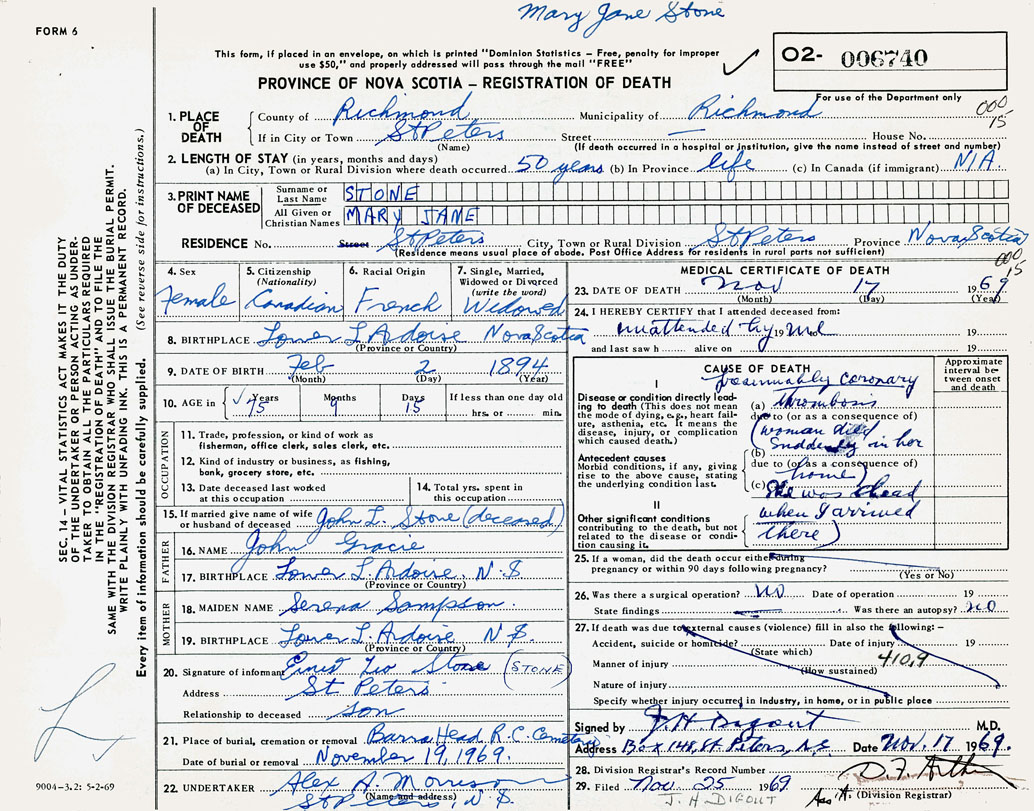 Mary Jane Stone
FORM 6
This form, if placed in an envelope, on which is printed "Dominion Statistics – Free, penalty for improper
use $50," and properly addressed will pass through the mail "FREE"
PROVINCE OF NOVA SCOTIA – REGISTRATION OF DEATH
O2- 006740
For use of the Department only
000
15
1. PLACE OF DEATH
County of Richmond Municipality of Richmond
If in City or Town St Peters Street — House No.
(Name) (If death occurred in a hospital or institution, give the name instead of street and number)
2. LENGTH OF STAY (in years, months and days)
(a) In City, Town or Rural Division where death occurred 50 years (b) In Province life (c) In Canada (if immigrant) N/A
3. PRINT NAME OF DECEASED
Surname or Last Name STONE
All Given or Christian Names MARY JANE
RESIDENCE No. Street St Peters City, Town or Rural Division St Peters Province Nova Scotia
(Residence means usual place of abode. Post Office Address for residents in rural parts not sufficient)
000
15
4. Sex
Female
5. Citizenship
(Nationality)
Canadian
6. Racial Origin
French
7. Single, Married,
Widowed or Divorced
(write the word)
Widowed
8. BIRTHPLACE Lower L'Ardoise Nova Scotia
(Province or Country)
9. DATE OF BIRTH Feb 2 1894
(Month) (Day) (Year)
10. AGE in Years Months Days If less than one day old
75 9 15 hrs. or min.
OCCUPATION
11. Trade, profession, or kind of work as
fisherman, office clerk, sales clerk, etc.
12. Kind of industry or business, as fishing,
bank, grocery store, etc.
13. Date deceased last worked
at this occupation
14. Total yrs. spent in
this occupation
15. If married give name of wife
or husband of deceased John L. Stone (deceased)
FATHER
16. NAME John Gracie
17. BIRTHPLACE Lower L'Ardoise, N.S.
(Province or Country)
MOTHER
18. MAIDEN NAME Serena Sampson.
19. BIRTHPLACE Lower L'Ardoise N.S.
(Province or Country)
20. Signature of informant Ernest Leo Stone (STONE)
Address St Peters
Relationship to deceased son
21. Place of burial, cremation or removal Barra Head R.C. Cemetery
Date of burial or removal November 19, 1969.
22. UNDERTAKER Alex A. Morrison
(Name and address)
St Peters, N.S.
MEDICAL CERTIFICATE OF DEATH
23. DATE OF DEATH Nov 17 1969
(Month) (Day) (Year)
24. I HEREBY CERTIFY that I attended deceased from:
unattended by 19 Md 19
and last saw h alive on 19
CAUSE OF DEATH
Approximate
interval be-
tween onset
and death
I
Disease or condition directly lead-
ing to death (This does not mean
the mode of dying, e.g., heart fail-
ure, asthenia, etc. It means the
disease, injury, or complication
which caused death.)
Presumably coronary
(a) thrombosis
due to (or as a consequence of)
(woman died
(b) suddenly in her
Antecedent causes
Morbid conditions, if any, giving
rise to the above cause, stating
the underlying condition last.
due to (or as a consequence of)
home
(c) She was dead
II
Other significant conditions
contributing to the death, but not
related to the disease or condi-
tion causing it.
when I arrived
there)
25. If a woman, did the death occur either during
pregnancy or within 90 days following pregnancy?
(Yes or No)
26. Was there a surgical operation? NO Date of operation 19
State findings Was there an autopsy? NO
27. If death was due to external causes (violence) fill in also the following: –
Accident, suicide or homicide? Date of injury 19
(State which)
410,9
Manner of injury
(How sustained)
Nature of injury
Specify whether injury occurred in industry, in home, or in public place
Signed by J. H. Digout M.D.
Address Box 148, St. Peters, N.S Date Nov. 17 1969.
28. Division Registrar's Record Number
29. Filed Nov 25 1969
J. H. DIGOUT
Ass't. (Division Registrar)
SEC. 14 – VITAL STATISTICS ACT MAKES IT THE DUTY
OF THE UNDERTAKER OR PERSON ACTING AS UNDER-
TAKER TO OBTAIN ALL THE PARTICULARS REQUIRED
IN THE "REGISTRATION OF DEATH" AND FILE THE
SAME WITH THE DIVISION REGISTRAR WHO SHALL ISSUE THE BURIAL PERMIT.
WRITE PLAINLY WITH UNFADING INK. THIS IS A PERMANENT RECORD.
Every item of information should be carefully supplied. (See reverse side for instructions.)
9004–3.2: 5-2-69